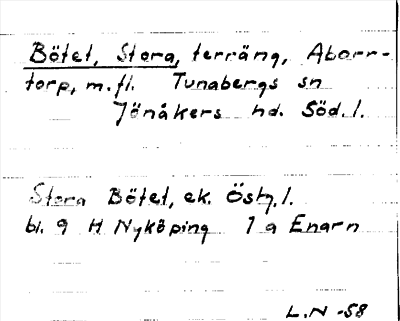 Bötet, Stora, terräng, Aborr-
torp, m.fl. Tunabergs sn
Jönåkers hd. Söd.l.
Stora Bötet, ek. Östg.l.
bl. 9 H Nyköping 1 a Enarn
L.N -58